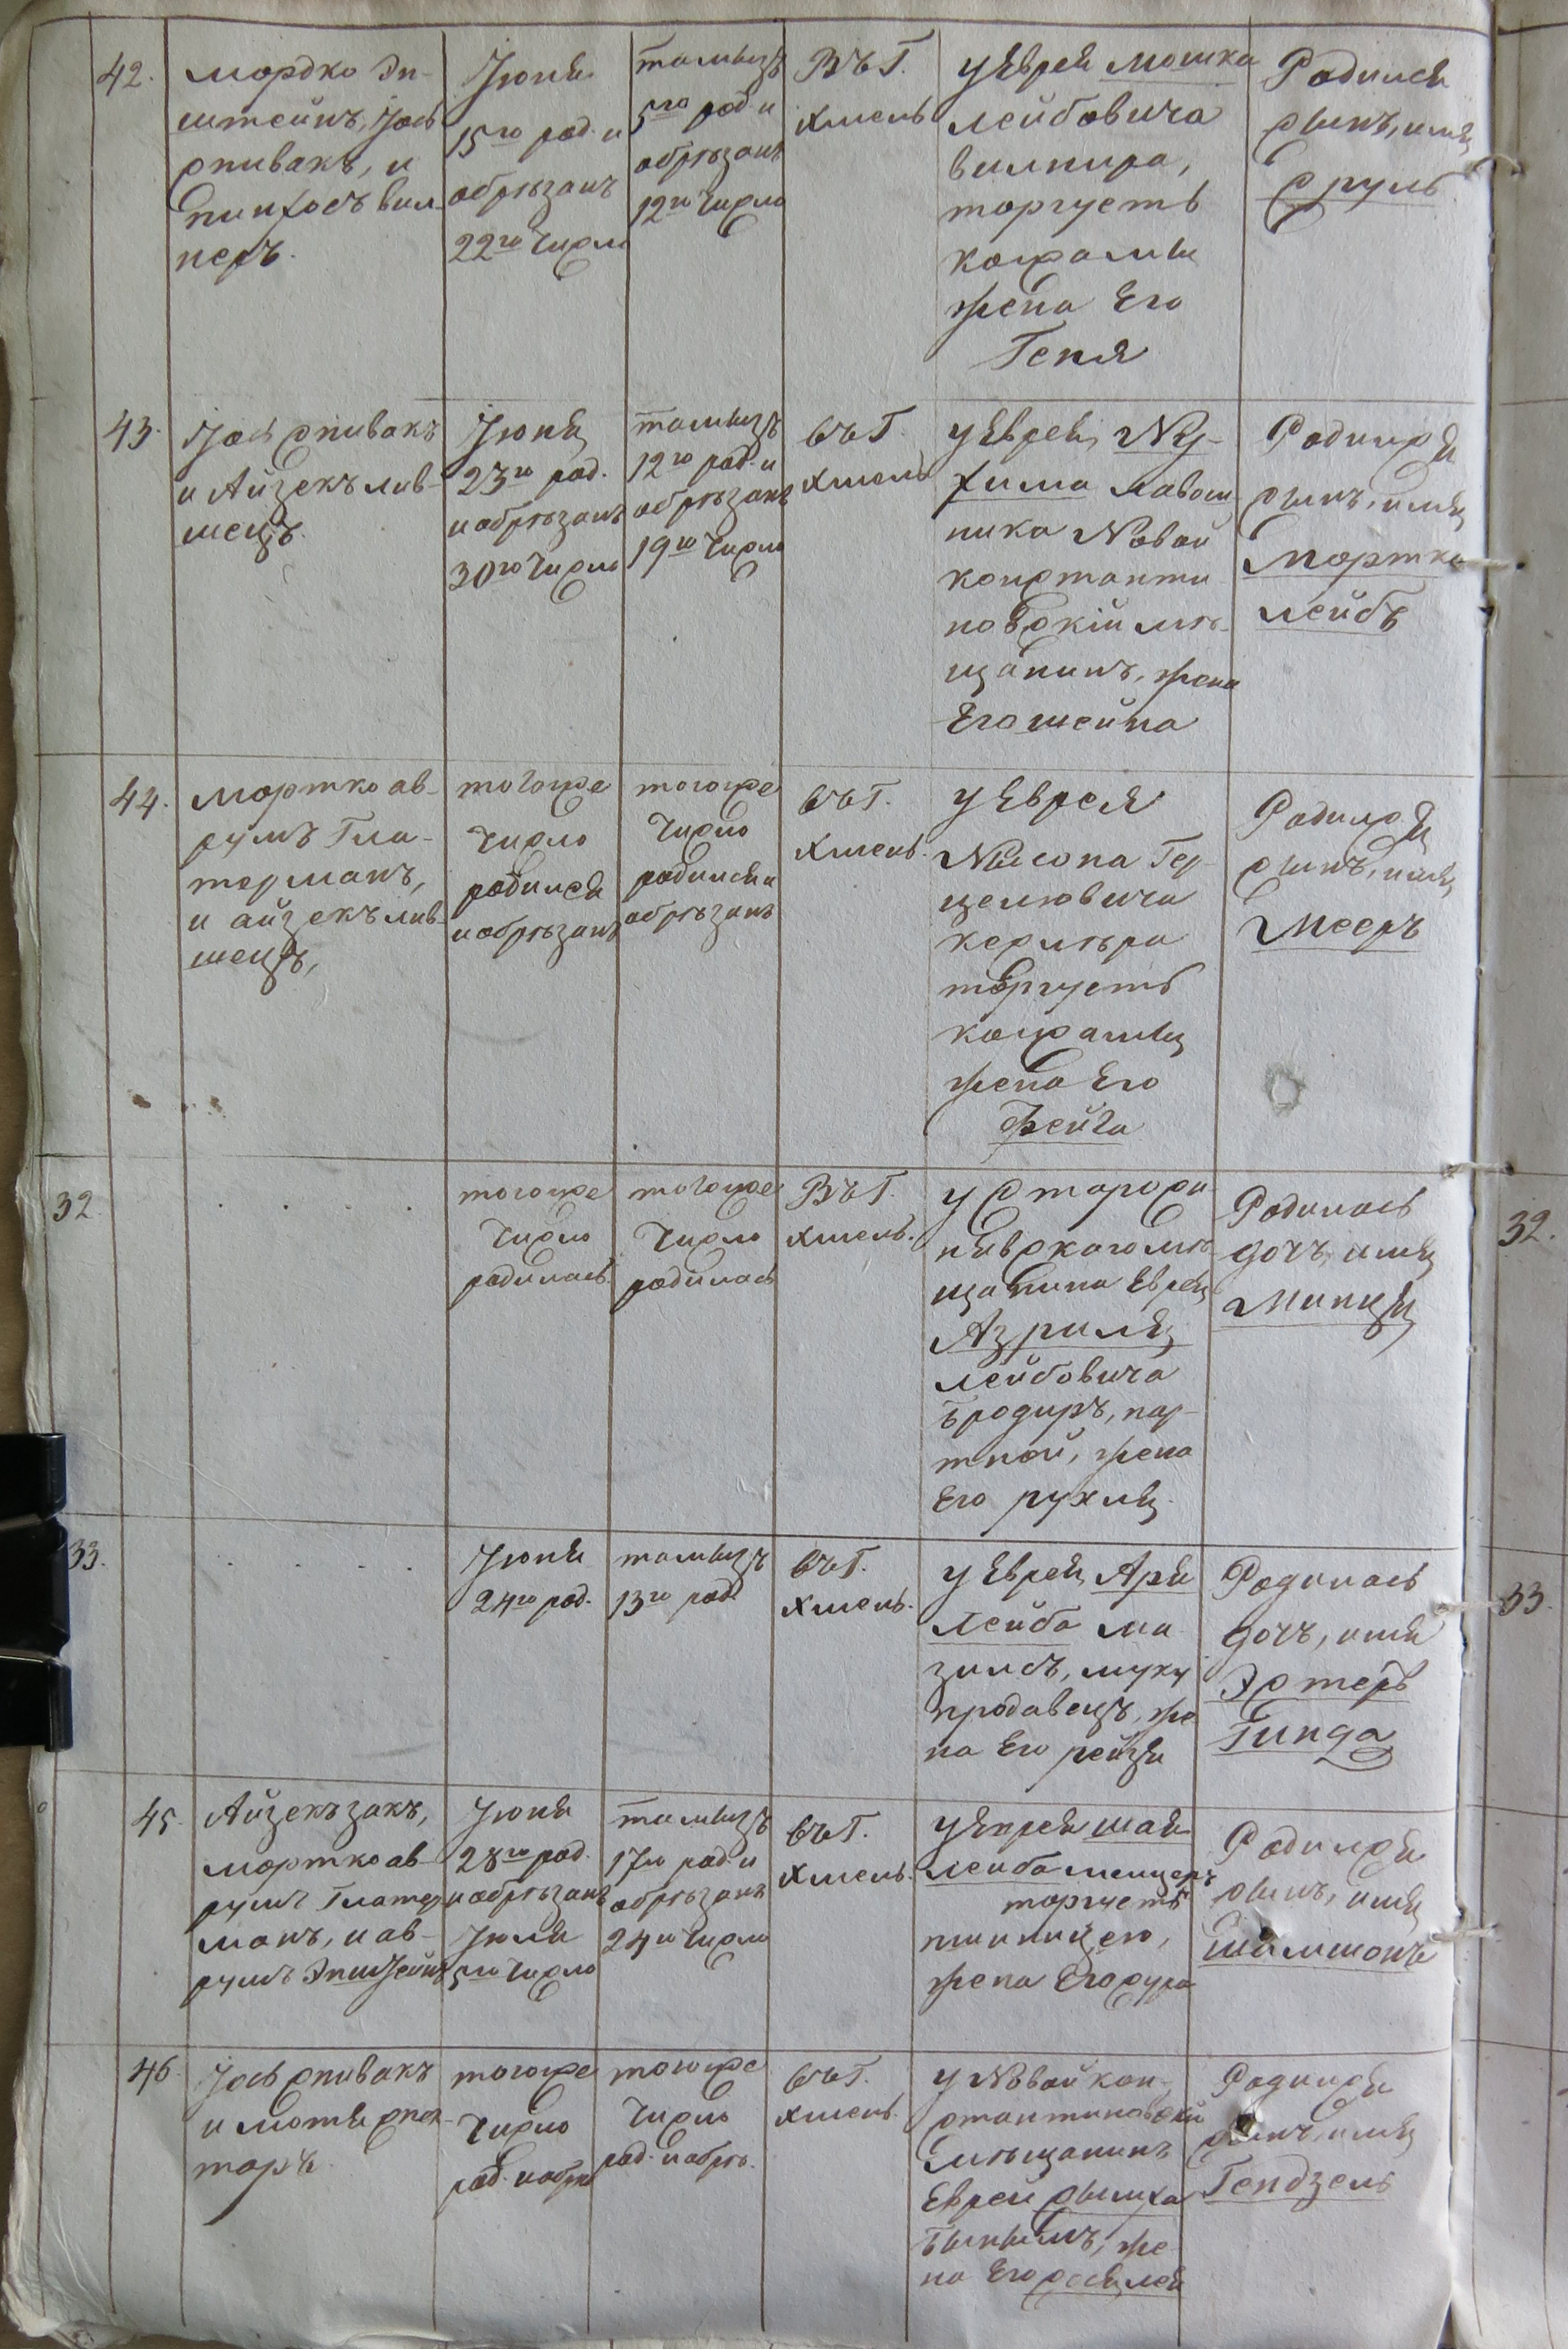 42.
Мордко Эп-
штейнъ, Іось
спивакъ, и
пинхосъ вил-
неръ.
Іюня
15го род. и
обрѣзанъ
22го число
тамызъ
5го род. и
обрѣзанъ
12го число
Въ Г.
хмель
у Еврея мошка
лейбовича
вилнира,
торгуетъ
косами
жена Его
Геня
Родился
сынъ, имя
сруль
43.
Іось спивакъ
и Айзекъ лив-
шецъ.
Іюня
23го род.
и обрѣзанъ
30го число
тамызъ
12го род. и
обрѣзанъ
19го число
въ Г.
хмель
у Еврея Ну-
хима лавош
ника Новой
константи
новскій мѣ-
щанинъ, жена
Его шейна
Родился
сынъ, имя
Мортко
лейбъ
44.
мортко ав-
румъ Гла-
терманъ,
и айзекъ лив
шецъ,
тогоже
число
родился
и обрѣзанъ
тогоже
число
родился и
обрѣзанъ
въ Г.
хмель.
у Еврея
Нысона Гер-
целювича
кесмѣра
торгуетъ
косрамы
жена Его
Фейга
Родился
сынъ, имя
Мееръ
32
. . . .
тогоже
число
родилась
тогоже
число
родилась
Въ Г.
хмель.
у Старокон
нявскаго мѣ
щанина Еврея
Азриля
лейбовича
Бродиръ, пор-
тной, жена
Его рухля.
Родилась
дочъ, имя
Минця
32.
33.
. . . .
Іюня
24го род.
тамызъ
13го род.
въ Г.
хмель.
у Еврея Аря
Лейба ма
зилсъ, муку
продавецъ, же
на Его рейзя
Родилась
дочъ, имя
Эстеръ
Гинда
33.
45
Айзекъ закъ,
мортко ав-
румъ Глатер
манъ, и ав-
румъ Эпштейнъ
Іюня
28го род.
и обрѣзанъ
Іюля
5го число
тамызъ
17го род. и
обрѣзанъ
24го число
въ Г.
хмель.
у Еврея шая
лейба мелцеръ
торгуетъ
пшиницею,
жена Его сура
Родился
сынъ, имя
шамшонъ
46
Іось спивакъ
и мотя спек-
торъ.
тогоже
число
род. и обрѣ
тогоже
число
род. и обрѣ.
въ Г.
хмель.
у Новой кон-
стантиновскій
мѣщанинъ
Еврей сымха
, же
на Его
Родился
сынъ, имя
Гендзель